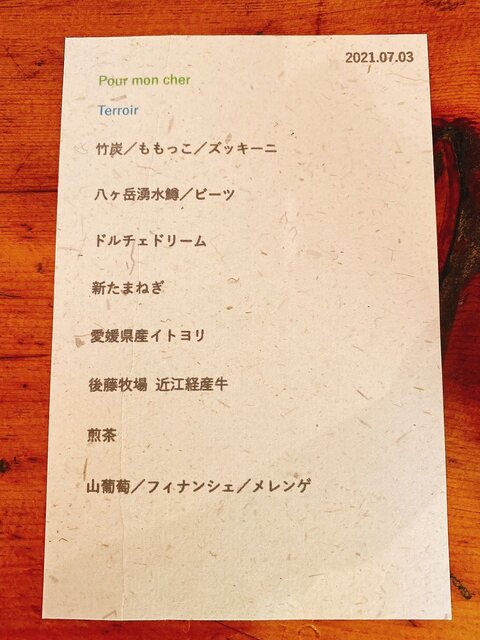 2021.07.03
Pour mon cher
Terroir
竹炭／ももっこ／ズッキーニ
八ヶ岳湧水鱒／ビーツ
ドルチェドリーム
新たまねぎ
愛媛県産イトヨリ
後藤牧場 近江経産牛
煎茶
山葡萄／フィナンシェ／メレンゲ